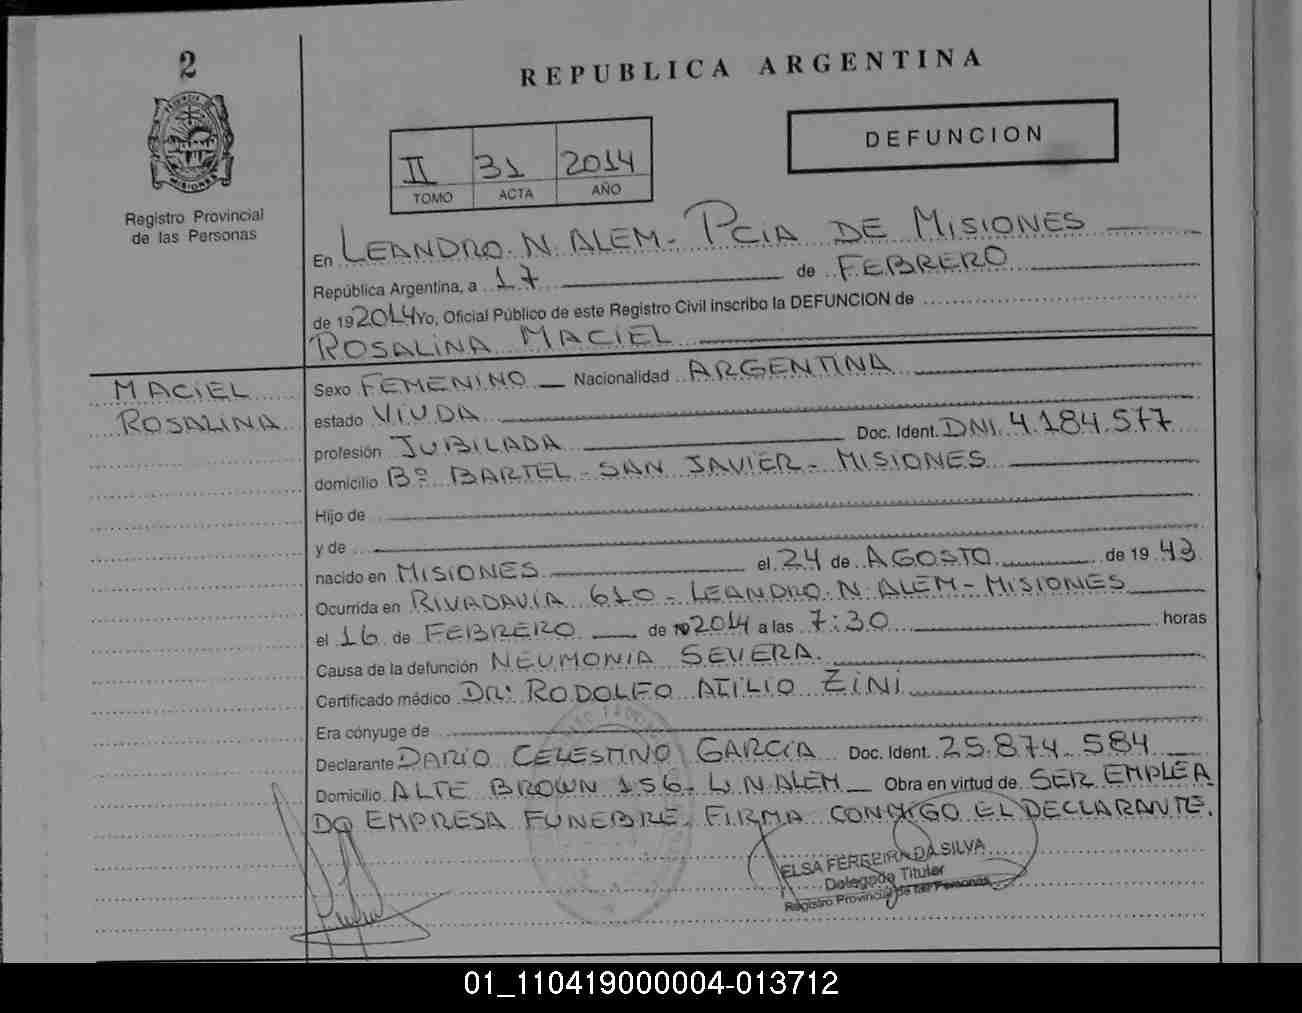 2
REPUBLICA ARGENTINA
MISIONES
Registro Provincial
de las Personas
II 31 2014
TOMO ACTA AÑO
DEFUNCION
En LEANDRO. N. ALEM. PCIA DE MISIONES
República Argentina, a 17 de FEBRERO
de 192014 Yo, Oficial Público de este Registro Civil inscribo la DEFUNCION de
ROSALINA MACIEL
MACIEL
ROSALINA
Sexo FEMENINO Nacionalidad ARGENTINA
estado VIUDA
profesión JUBILADA Doc. Ident. DNI. 4.184.577
domicilio Bº BARTEL - SAN JAVIER - MISIONES
Hijo de
y de
nacido en MISIONES el 24 de AGOSTO de 19 43
Ocurrida en RIVADAVIA 610 - LEANDRO. N. ALEM - MISIONES
el 16 de FEBRERO de 192014 a las 7:30 horas
Causa de la defunción NEUMONIA SEVERA.
Certificado médico DR: RODOLFO ATILIO ZINI
Era cónyuge de
Declarante DARIO CELESTINO GARCIA Doc. Ident. 25.874.584
Domicilio ALTE BROWN 156. L. N. ALEM Obra en virtud de SER EMPLEA
DO EMPRESA FUNEBRE. FIRMA CONMIGO EL DECLARANTE.
ELSA FERREIRA DA SILVA
Delegada Titular
Registro Provincial de las Personas
01_110419000004-013712